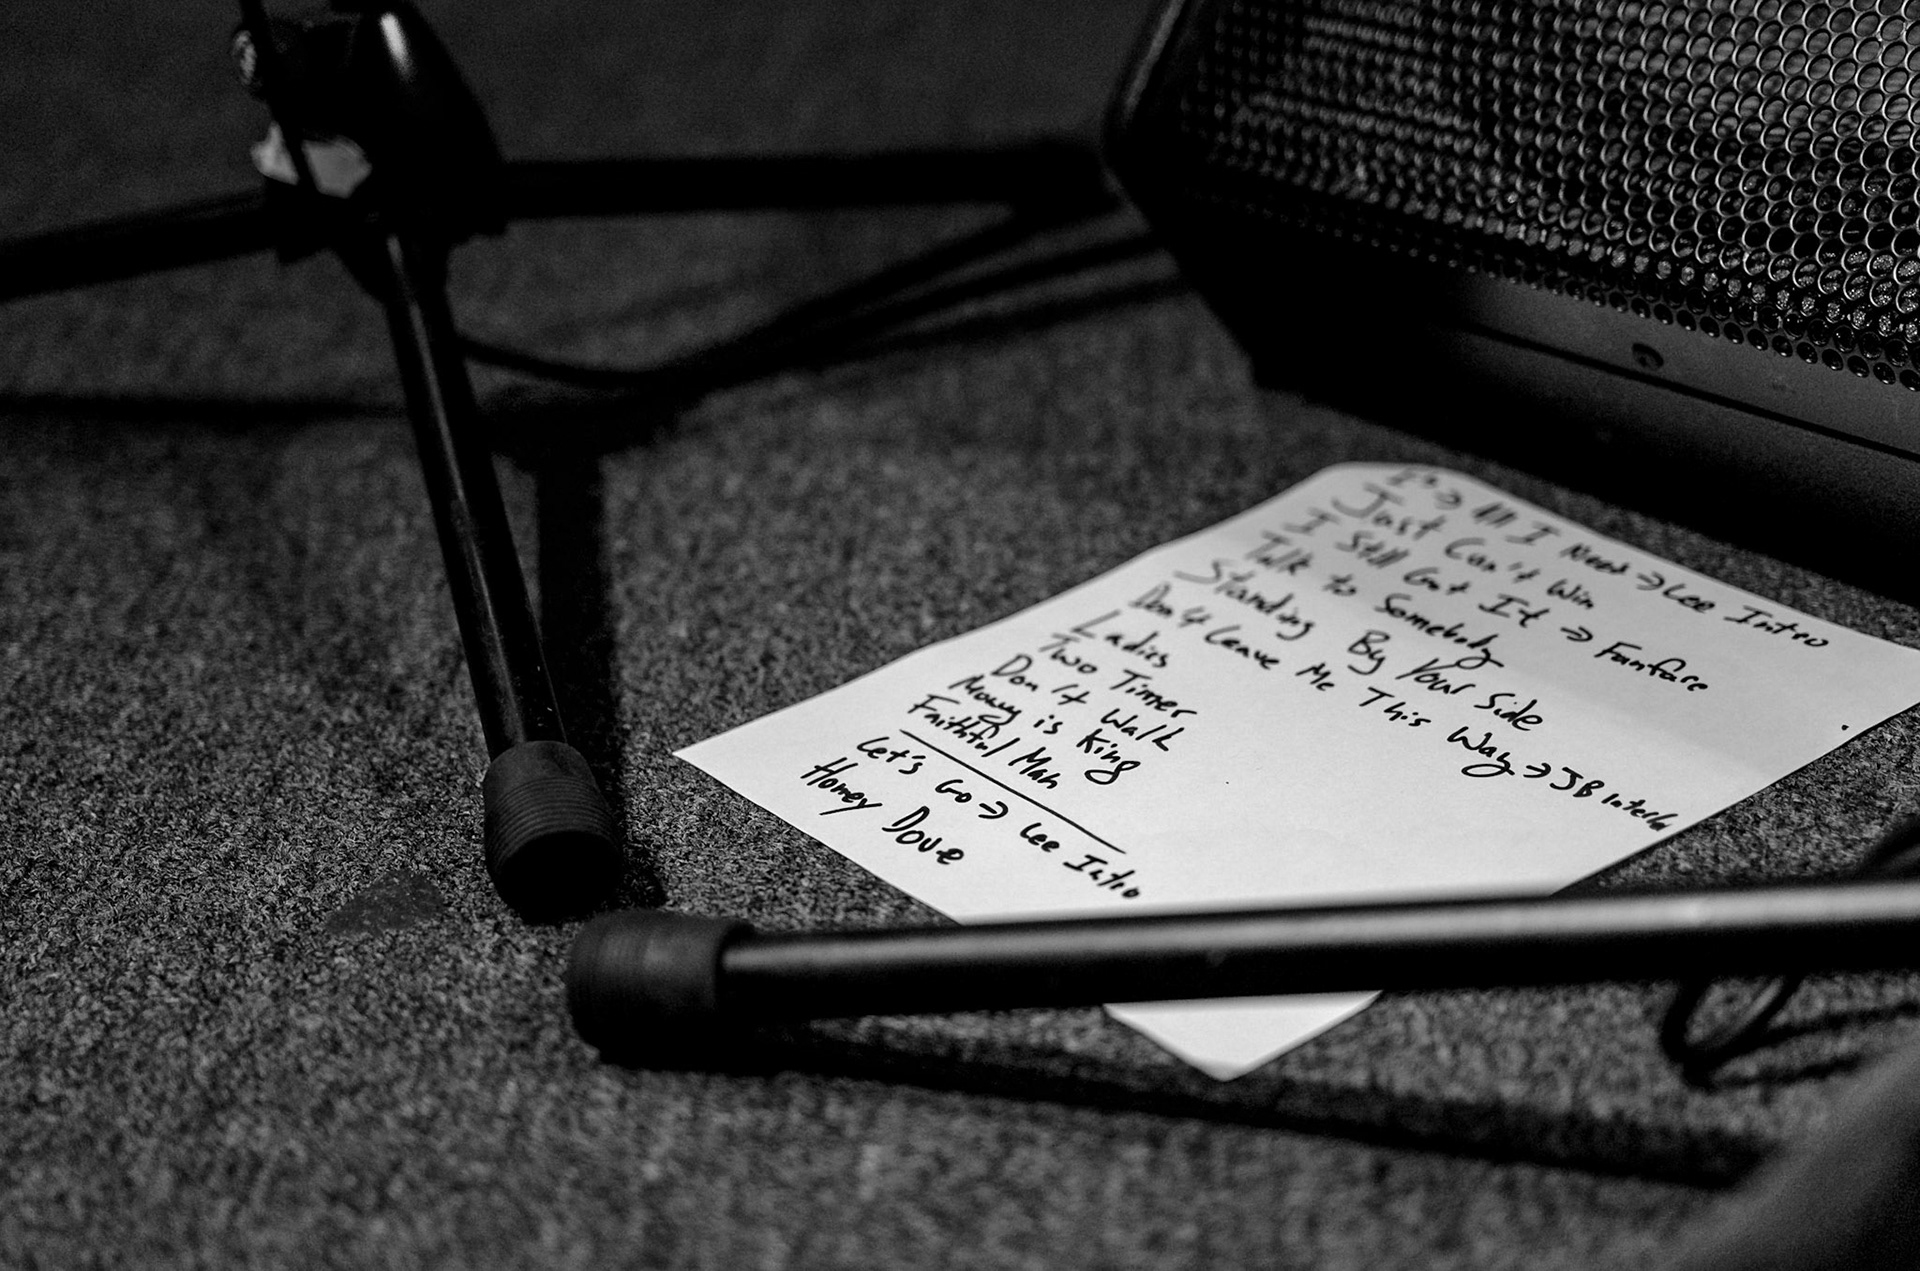 → All I Need → Lee Intro
Just Can't Win
I Still Got It → Fanfare
Talk to Somebody
Standing By Your Side
Don't Leave Me This Way → JB
Ladies
Two Timer
Don't Walk
Money is King
Faithful Man
Let's Go → Lee Intro
Honey Dove